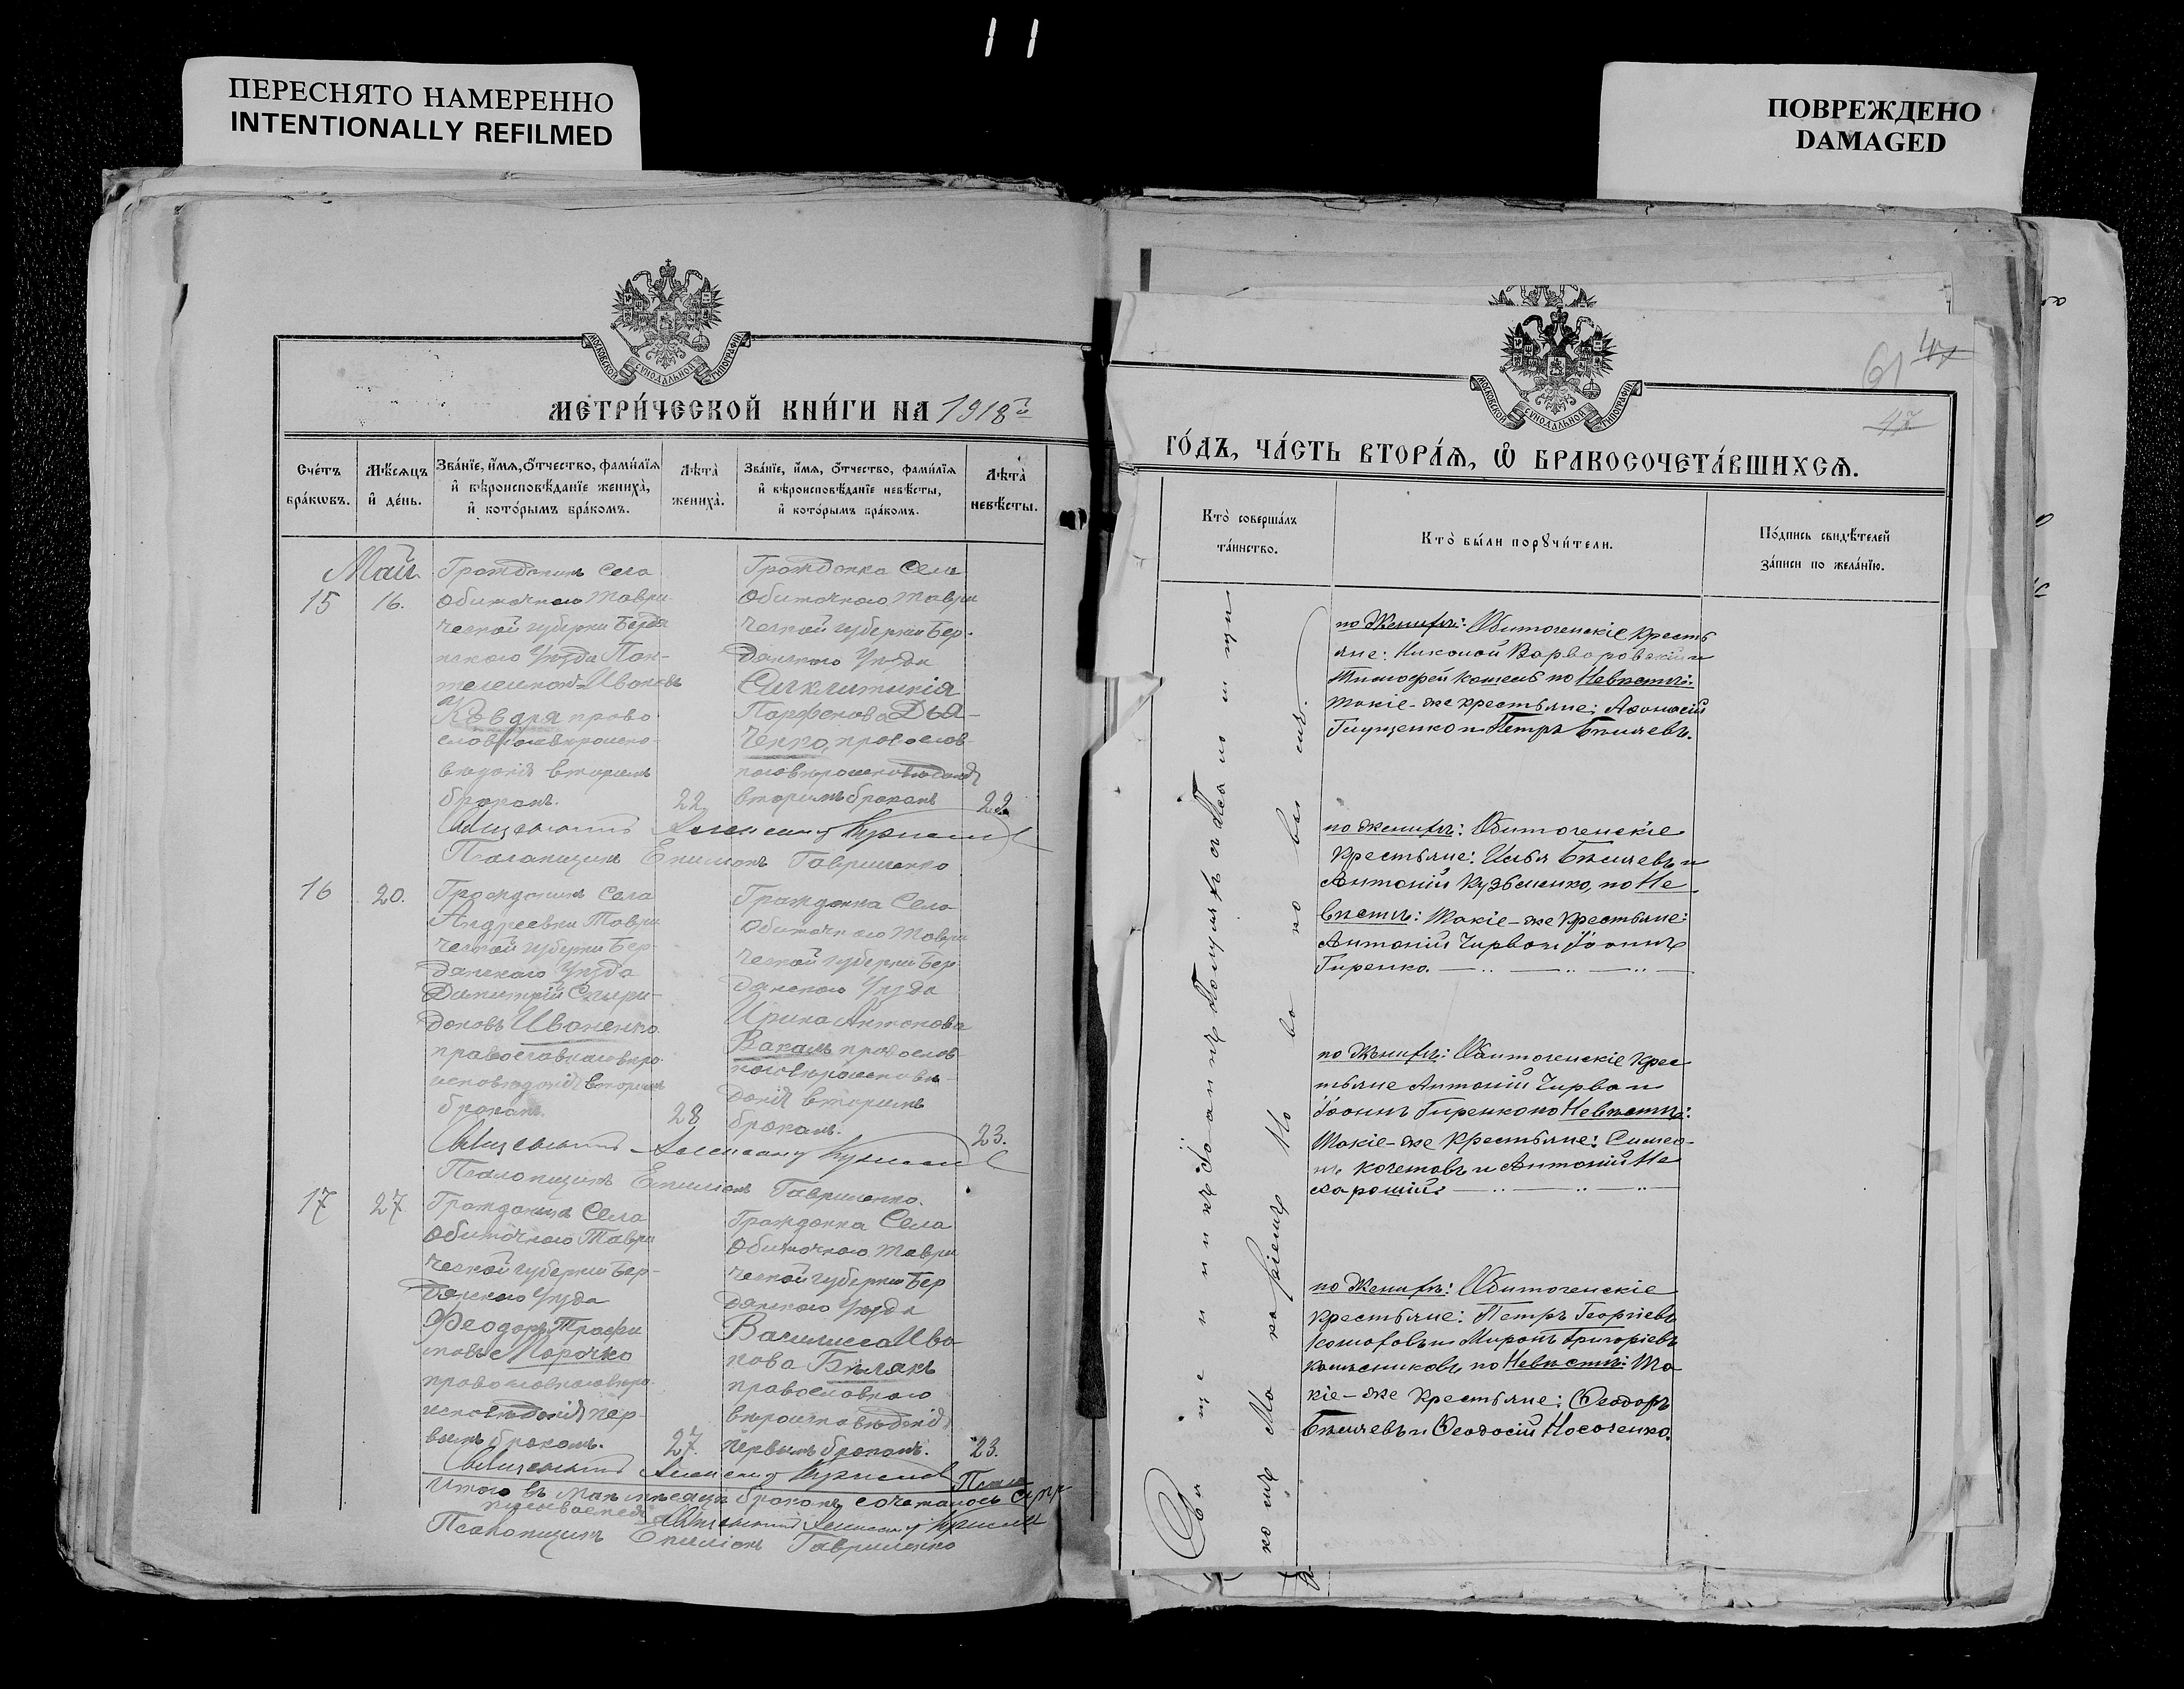 ПЕРЕСНЯТО НАМЕРЕННО
INTENTIONALLY REFILMED
ПОВРЕЖДЕНО
DAMAGED
МОСКОВСКОЙ СУНОДАЛЬНОЙ ТИПОГРАФІИ
МЕТРИ́ЧЕСКОЙ КНИ́ГИ НА 1918 й
Сче́тъ бра́кѡвъ.
Мѣ́сѧцъ и҆ де́нь.
Зва́нїе, и҆́мѧ, ѻ҆́тчество, фами́лїѧ
и҆ вѣроисповѣ́данїе жениха̀,
и҆ кото́рымъ бра́комъ.
Лѣта̀ жениха̀.
Зва́нїе, и҆́мѧ, ѻ҆́тчество, фами́лїѧ
и҆ вѣроисповѣ́данїе невѣ́сты,
и҆ кото́рымъ бра́комъ.
Лѣта̀ невѣ́сты.
Май
15
16.
Гражданинъ Села
Обиточнаго Таври
ческой губерніи Бердя
нскаго Уѣзда Пан-
телеимонъ Ивановъ
Кѣваря право
славнаго вѣроиспо-
вѣданія вторымъ
бракомъ.
22
Гражданка Села
Обиточнаго Таври
ческой губерніи Бер-
дянскаго Уѣзда
Синклитикія
Парфенова Дья-
ченко, православ
наго вѣроисповѣданія
вторымъ бракомъ
22
Священникъ Александръ
Псаломщикъ Гавриленко
16
20.
Гражданинъ Села
Андреевки Таври
ческой губерніи Бер-
дянскаго Уѣзда
Димитрій Спири-
доновъ Иваненко
православнаго вѣро
исповѣданія вторымъ
бракомъ.
28
Гражданка Села
Обиточнаго Таври
ческой губерніи Бер
дянскаго Уѣзда
Ирина Антонова
Вакаль православ
наго вѣроисповѣ-
данія вторымъ
бракомъ.
23.
Священникъ Александръ
Псаломщикъ Гавриленко.
17
27
Гражданинъ Села
Обиточнаго Таври
ческой губерніи Бер-
дянскаго Уѣзда
Феодоръ Трофи
мовъ Марочко
православнаго вѣро
исповѣданія пер-
вымъ бракомъ.
27.
Гражданка Села
Обиточнаго Таври
ческой губерніи Бер
дянскаго Уѣзда
Василисса Ива
нова Бѣлякъ
православнаго
вѣроисповѣданія
первымъ бракомъ.
23.
Священникъ Александръ
Итого въ Маѣ мѣсяцѣ браковъ сочеталось
Священникъ Александръ
Псаломщикъ Гавриленко
61
47
47
МОСКОВСКОЙ СУНОДАЛЬНОЙ ТИПОГРАФІИ
ГО́ДЪ, ЧА́СТЬ ВТОРА́Ѧ, Ѡ҆ БРАКОСОЧЕТА́ВШИХСѦ.
Кто̀ соверша́лъ
та́инство.
Кто̀ бы́ли порꙋчи́тели.
По́дпись свидѣ́телей
за́писи по жела́нїю.
по Женихѣ: Обиточенскіе Кресть
яне: Николай Варваровскій и
Тимофей Кошель по Невѣстѣ:
такіе-же крестьяне: Аѳанасій
Глущенко и Петръ Бѣляевъ.
по Женихѣ: Обиточенскіе
Крестьяне: Илья Бѣляевъ и
Антоній Кузьменко, по Не
вѣстѣ: Такіе-же Крестьяне:
Антоній Чирва и Іоаннъ
Гиренко.
по Женихѣ: Обиточенскіе Крес
тьяне Антоній Чирва и
Іоаннъ Гиренко по Невѣстѣ:
Такіе-же Крестьяне: Симео-
нъ Кочетовъ и Антоній Не
хорошій
по Женихѣ: Обиточенскіе
Крестьяне: Петръ Георгіевъ
и Миронъ Григорьевъ
по Невѣстѣ: Та
кіе-же Крестьяне: Ѳеодоръ
Бѣляевъ и Ѳеодосій Носаченко.